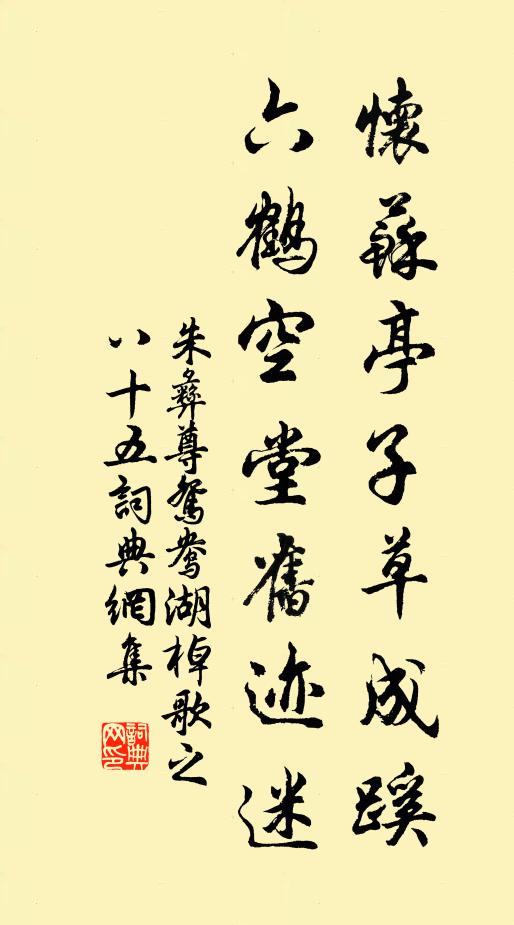 懷蘇亭子草成蹊
六鶴空堂舊迹迷
朱彝尊鴛鴦湖棹歌之
八十五詞典網集
詞典
网印